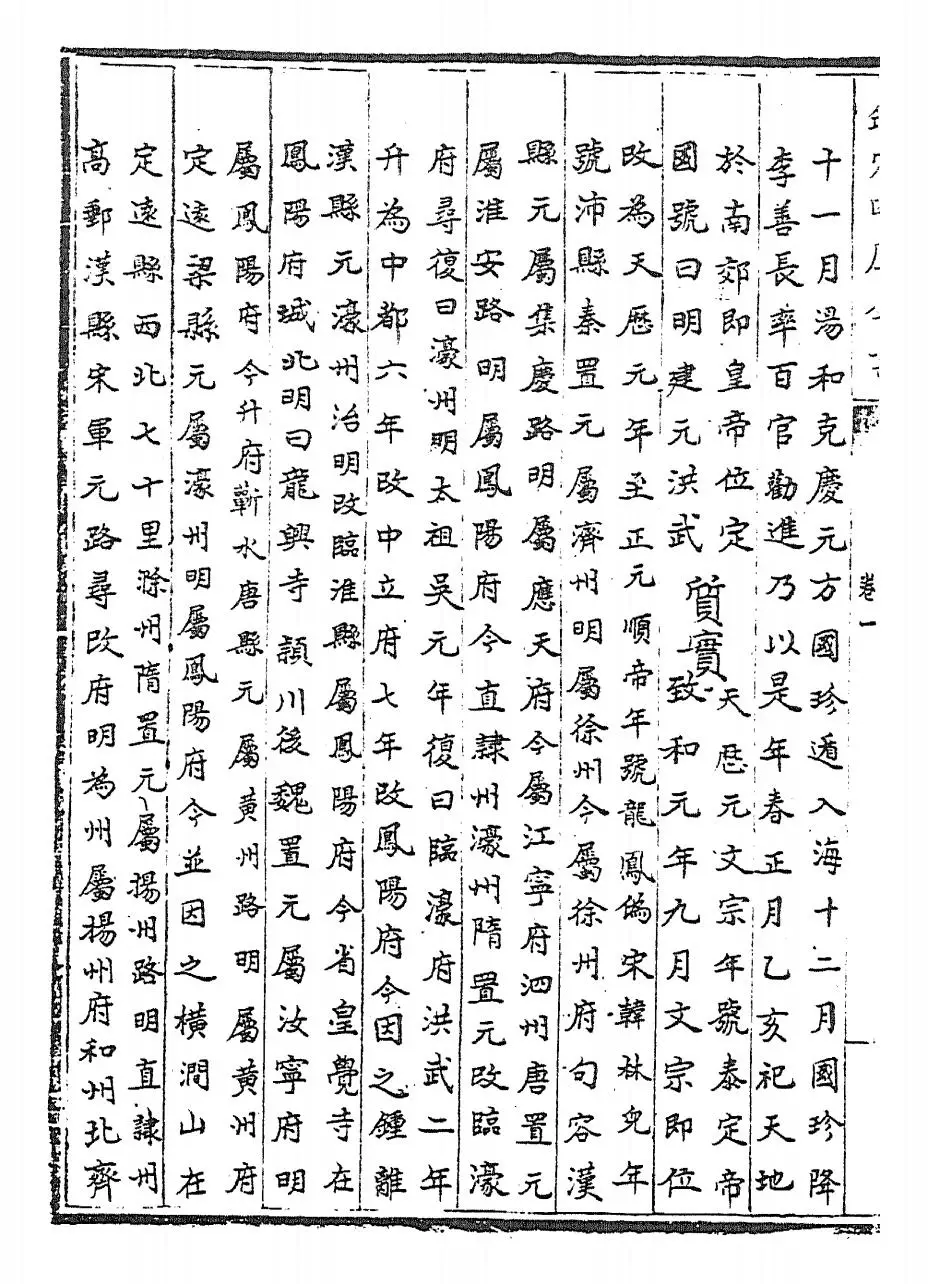 欽定四庫全書
卷一
十一月湯和克慶元方國珍遁入海十二月國珍降
李善長率百官勸進乃以是年春正月乙亥祀天地
於南郊即皇帝位定
國號曰明建元洪武
質實
天厯元文宗年號泰定帝
致和元年九月文宗即位
改為天厯元年至正元順帝年號龍鳳僞宋韓林兒年
號沛縣秦置元屬濟州明屬徐州今屬徐州府句容漢
縣元屬集慶路明屬應天府今屬江寧府泗州唐置元
屬淮安路明屬鳳陽府今直隸州濠州隋置元改臨濠
府尋復曰濠州明太祖吳元年復曰臨濠府洪武二年
升為中都六年改中立府七年改鳳陽府今因之鍾離
漢縣元濠州治明改臨淮縣屬鳳陽府今省皇覺寺在
鳳陽府城北明曰龍興寺潁川後魏置元屬汝寧府明
屬鳳陽府今升府蘄水唐縣元屬黄州路明屬黄州府
定遠梁縣元屬濠州明屬鳳陽府今並因之橫澗山在
定遠縣西北七十里滁州隋置元屬揚州路明直隸州
高郵漢縣宋軍元路尋改府明為州屬揚州府和州北齊